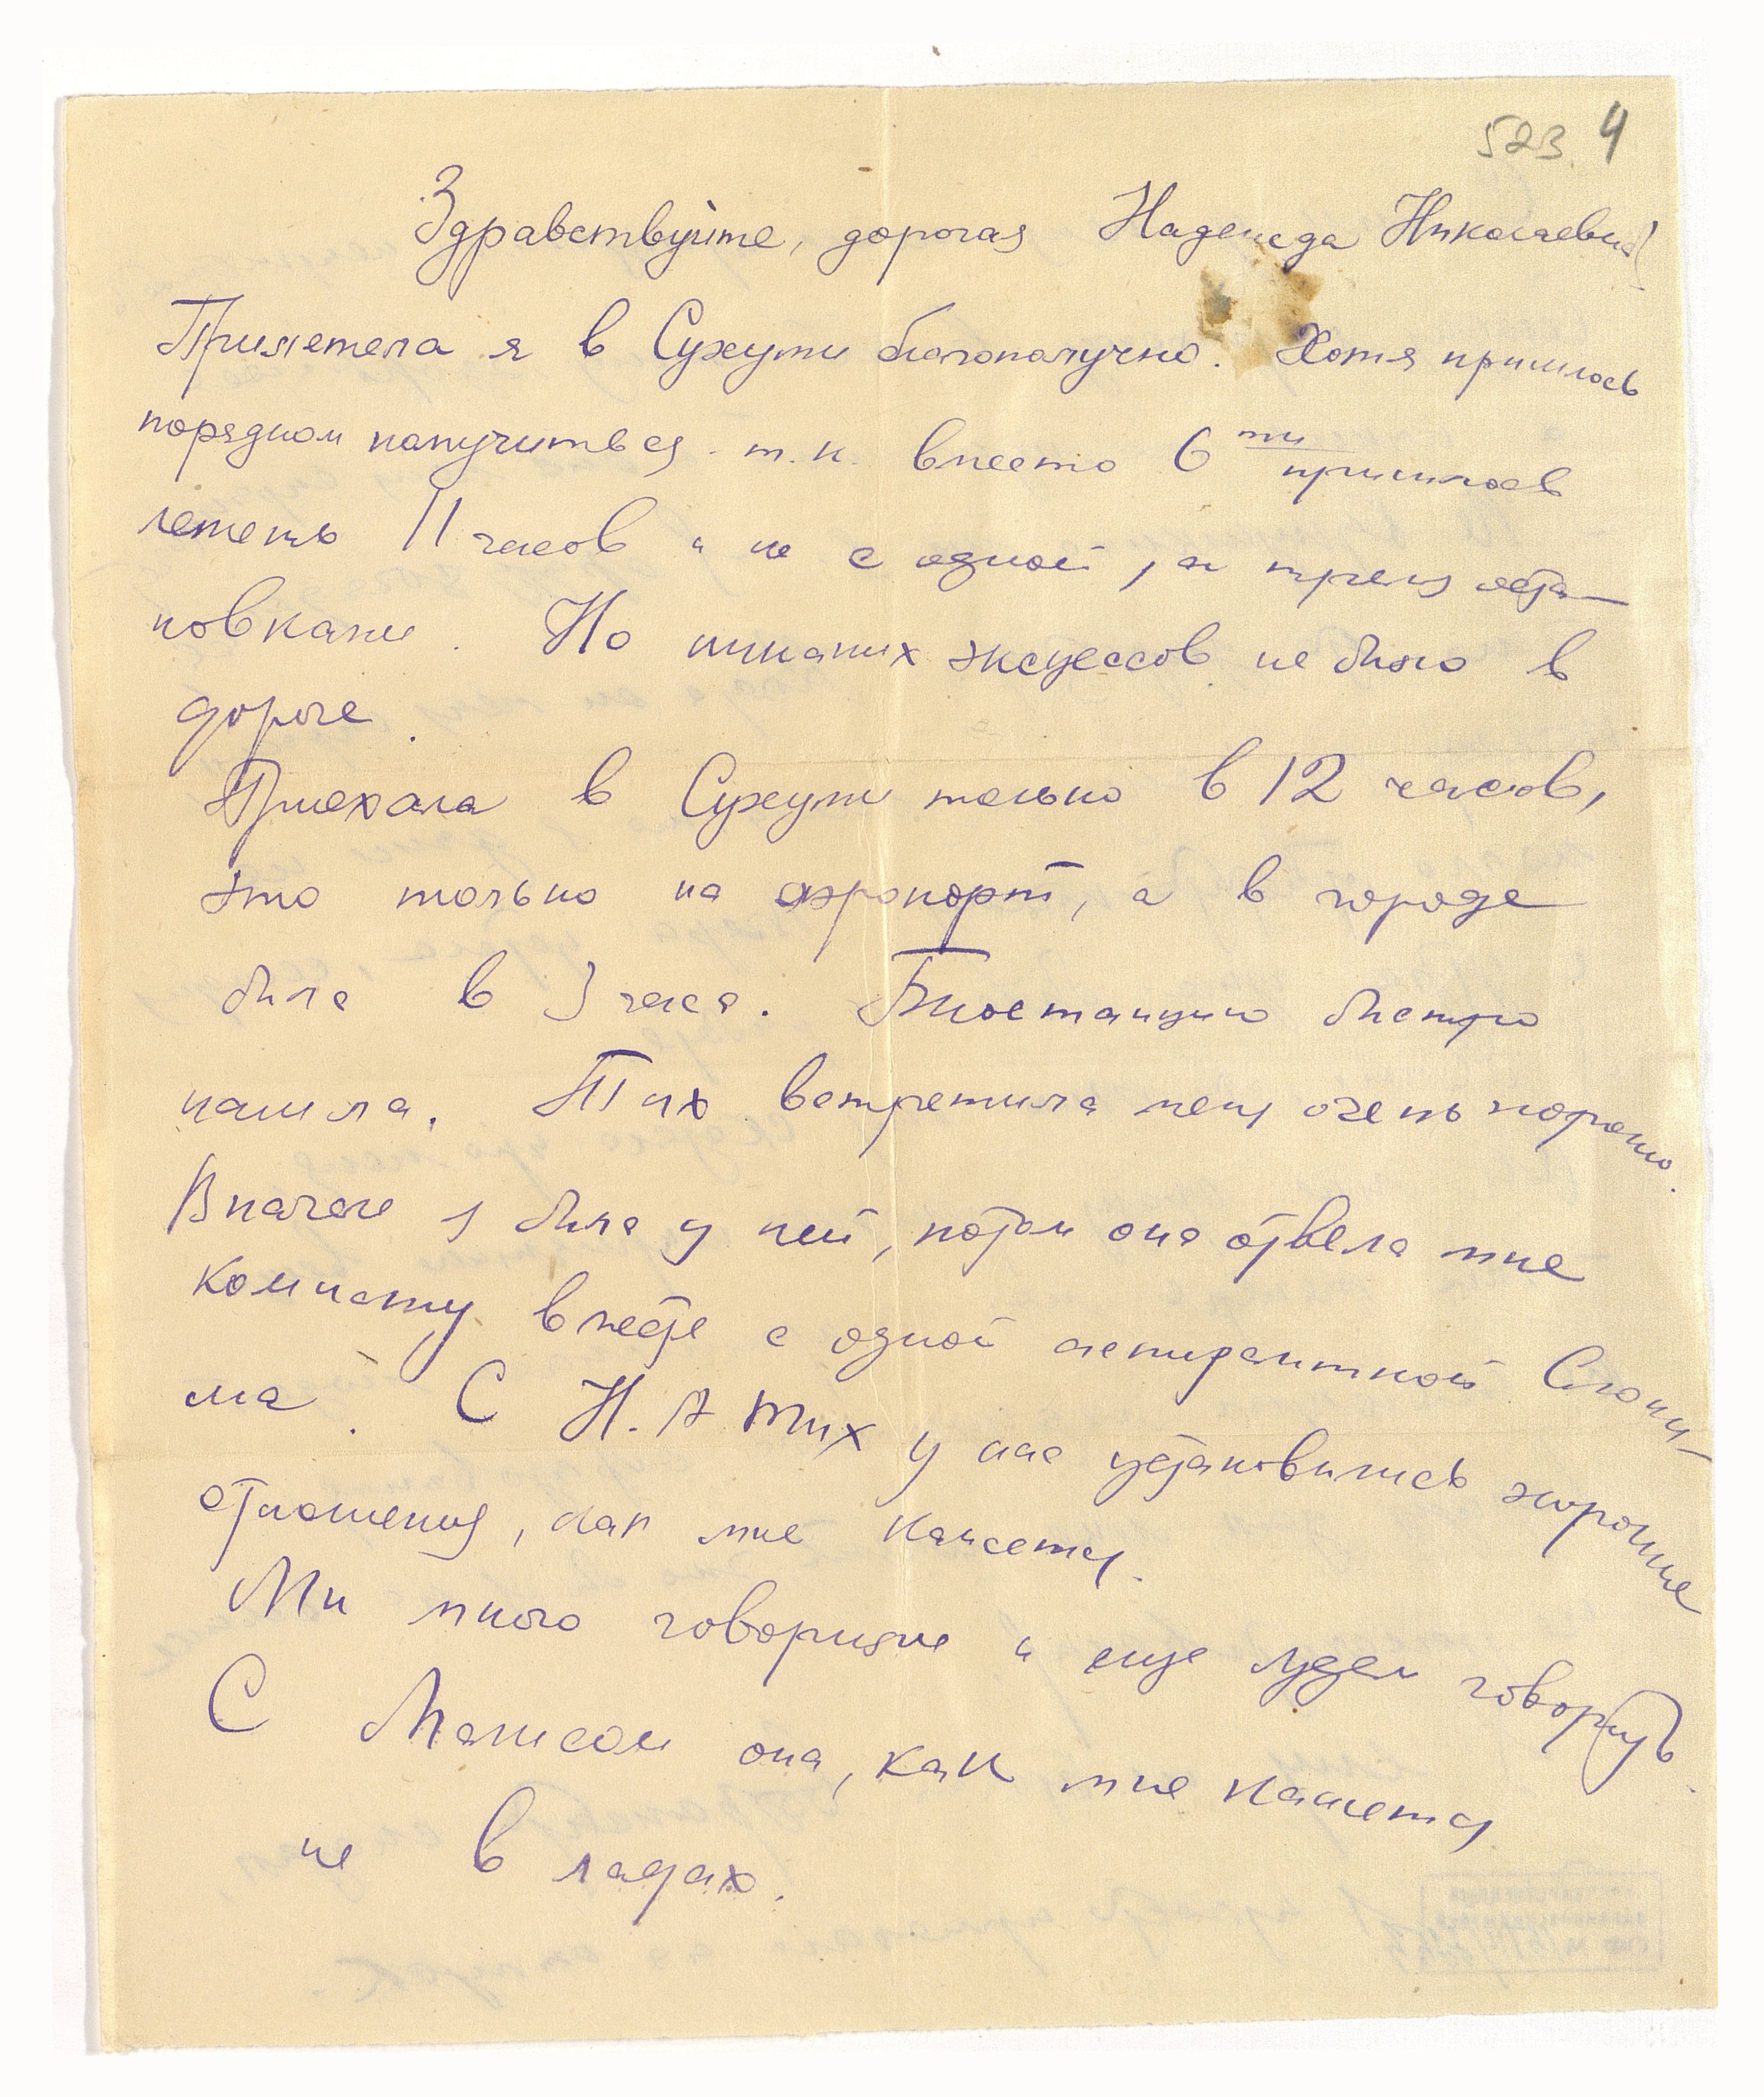 523. 4
Здравствуйте, дорогая Надежда Николаевна!
Прилетела я в Сухуми благополучно. Хотя пришлось
порядком помучиться т.к. вместо 6ти пришлось
лететь 11 часов и не с одной, а тремя оста-
новками. Но никаких эксцессов не было в
дороге.
Приехала в Сухуми только в 12 часов,
это только на аэропорт, а в городе
была в 3 часа. Биостанцию быстро
нашла. Тих встретила меня очень хорошо.
Вначале я была у ней, потом она отвела мне
комнату вместе с одной аспиранткой Слони-
ма. С Н.А Тих у нас установились хорошие
отношения, как мне кажется.
Мы много говорили и еще будем говорить.
С она, как мне кажется
не в ладах.